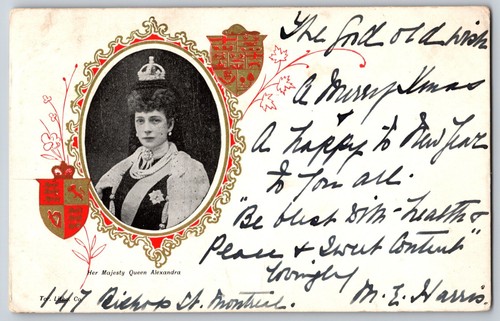 The good old wish
A Merry Xmas
A happy New Year
to you all.
"Be blest with health &
Peace & Sweet Content"
Lovingly
M. E. Harris.
Her Majesty Queen Alexandra
Co.
147 Bishop St. Montreal.